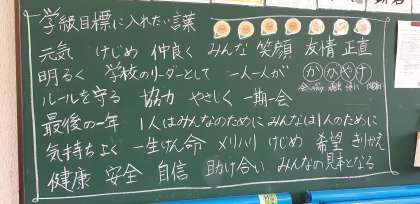 学級目標に入れたい言葉
元気 けじめ 仲良く みんな 笑顔 友情 正直
明るく 学校のリーダーとして 一人一人が かがやけ
ルールを守る 協力 やさしく 一期一会
最後の一年 1人はみんなのために みんなは1人のために
気持ちよく 一生けん命 メリハリ けじめ 希望 きりかえ
健康 安全 自信 助け合い みんなの見本となる